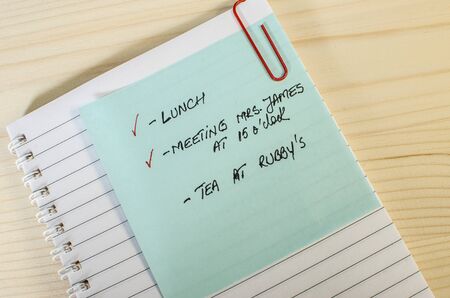 - LUNCH
- MEETING MRS. JAMES
AT 15 o'clock
- TEA AT RUBBY'S